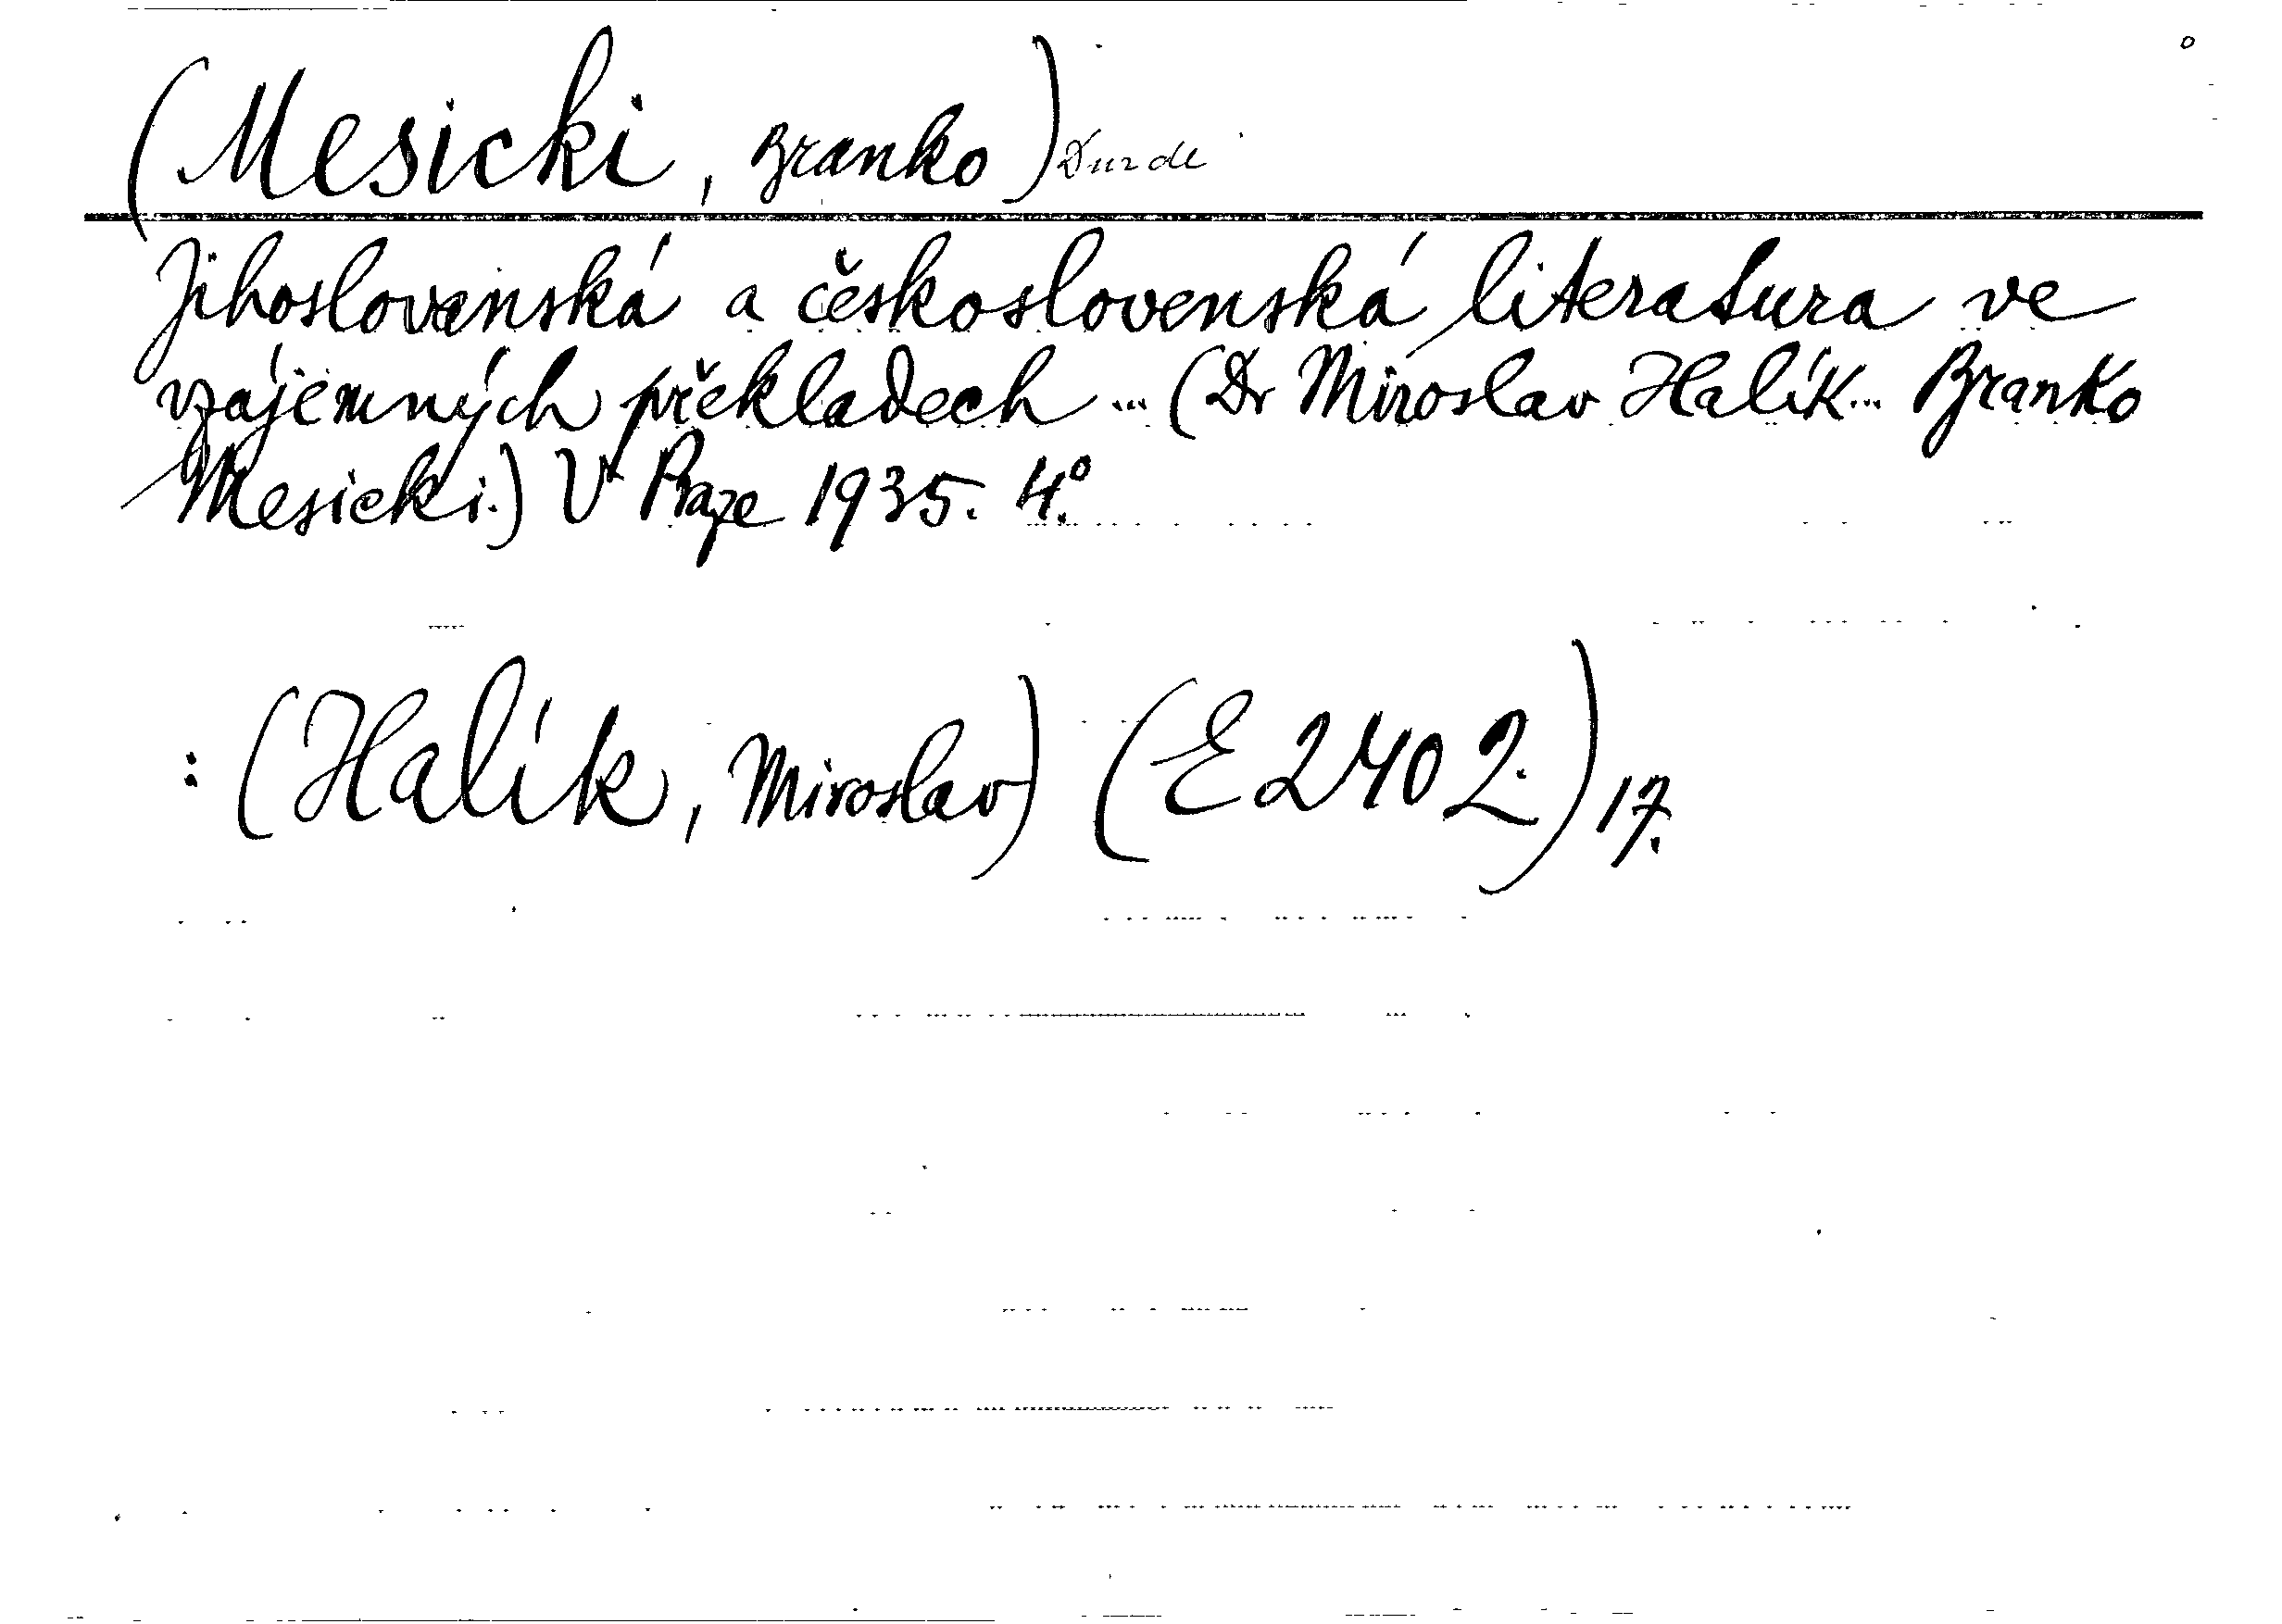 (Mesicki, Branko)
Jihoslovanská a československá literatura ve
vzájemných překladech ... (Dr Miroslav Halík ... Branko
Mesicki.) V Praze 1935. 4°.
: (Halík, Miroslav) (E 2402.) 17.